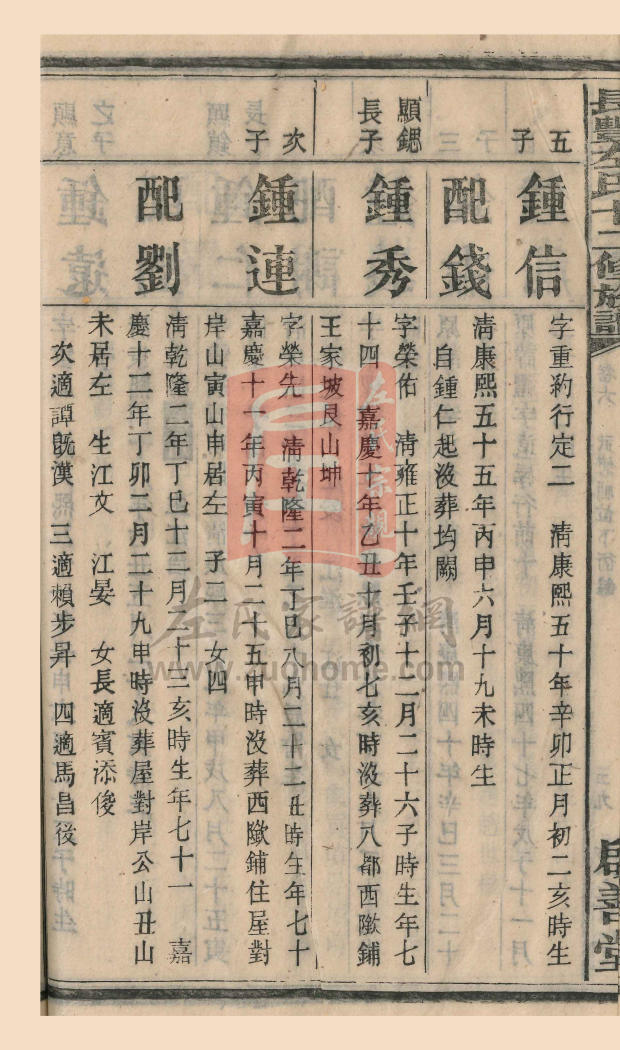 長豐左氏十二修族譜
卷六
啟善堂
五子
鍾信
字重豹行定二 清康熙五十年辛卯正月初二亥時生
配錢
清康熙五十五年丙申六月十九未時生
自鍾仁起沒葬均闕
顯鍶長子
鍾秀
字榮佑 清雍正十年壬子十二月二十六子時生年七
十四 嘉慶十年乙丑十月初七亥時沒葬八都西歟鋪
王家坡艮山坤
次子
鍾連
字榮先 清乾隆二年丁巳八月二十二丑時生年七十
嘉慶十一年丙寅十月二十五申時沒葬西歟鋪住屋對
岸山寅山申居左 子二 女四
配劉
清乾隆二年丁巳十二月二十三亥時生年七十一 嘉
慶十二年丁卯二月二十九申時沒葬屋對岸公山丑山
未居左 生江文 江晏 女長適賓添俊
次適譚既漢 三適賴步昇 四適馬昌後
左氏宗親
左氏家譜網
www.zuohome.com